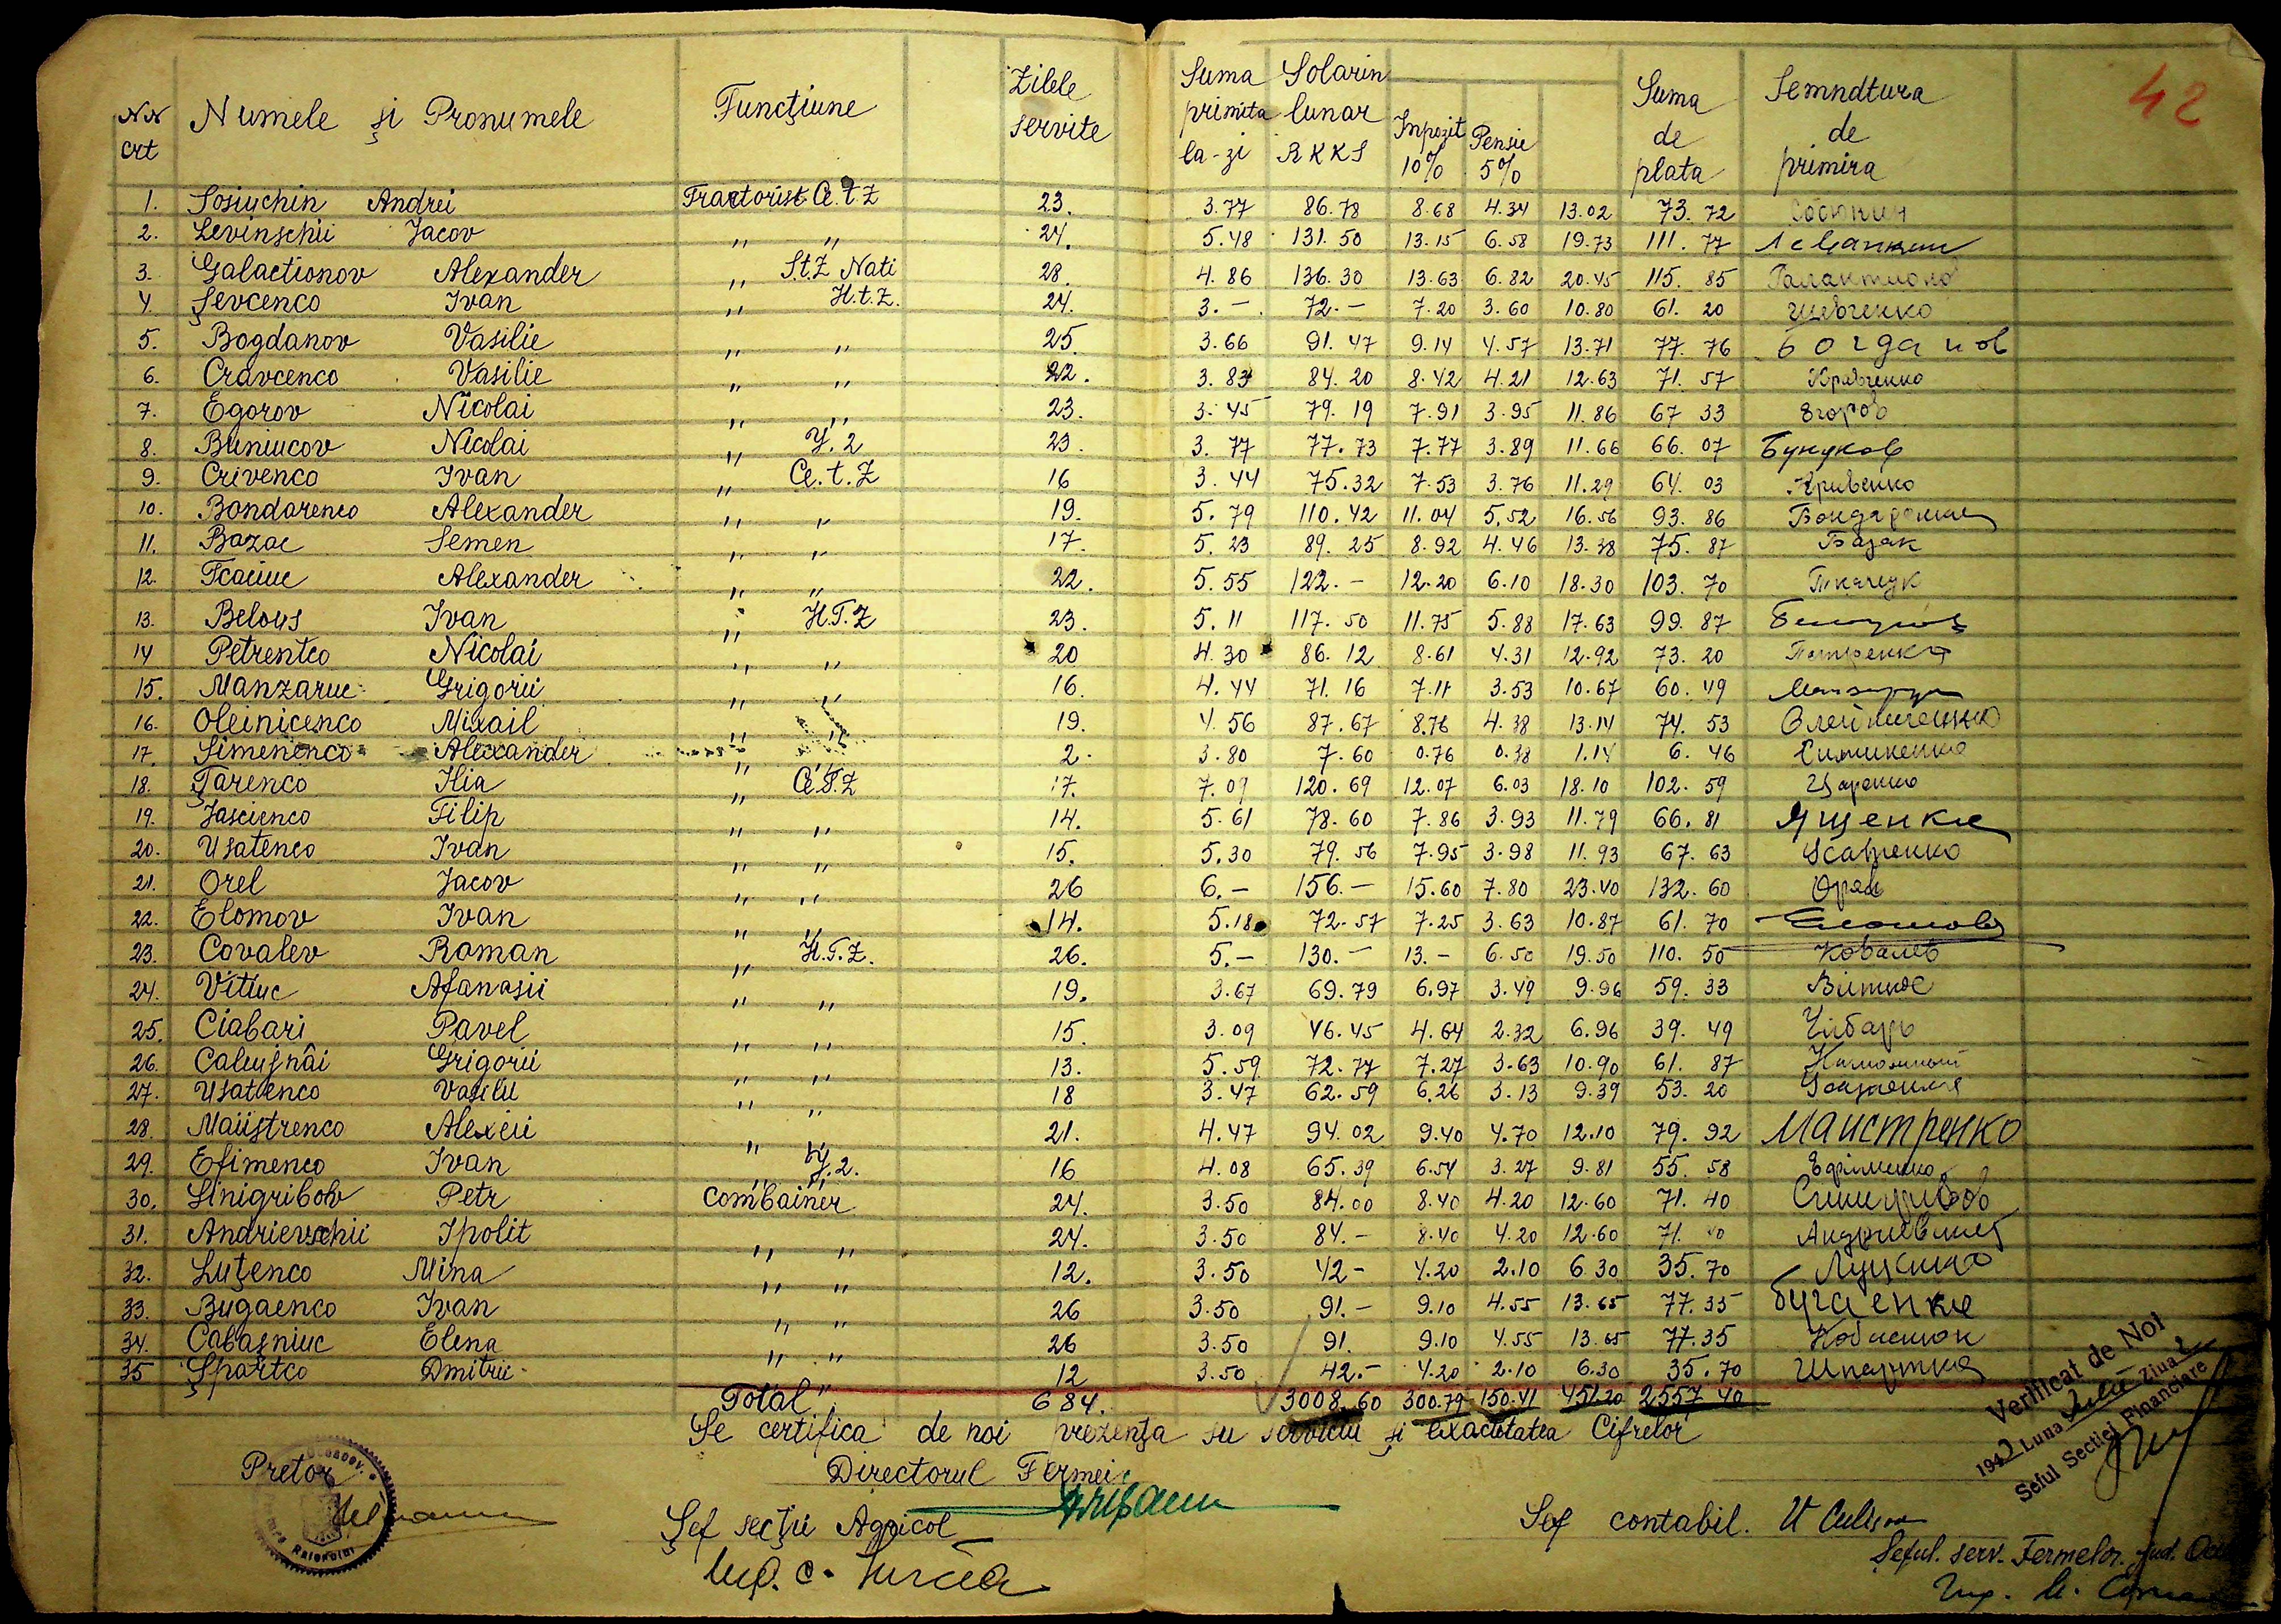 42
NN crt Numele și Pronumele Funcţiune Zilele servite Suma primita la-zi Solarin lunar RKKS Inpozit 10% Pensie 5% Suma de plata Semndtura de primira
1. Sosiuchin Andrei Tractorist Ce.t.Z 23. 3.77 86.78 8.68 4.34 13.02 73.72 Сосюкин
2. Levinschii Jacov " " 24. 5.48 131.50 13.15 6.58 19.73 111.77
3. Galactionov Alexander " S.t.Z Nati 28. 4.86 136.30 13.63 6.82 20.45 115.85 Галактионо
4. Șevcenco Ivan " H.t.Z. 24. 3.- 72.- 7.20 3.60 10.80 61.20 Шевченко
5. Bogdanov Vasilie " " 25. 3.66 91.47 9.14 4.57 13.71 77.76 Богданов
6. Cravcenco Vasilie " " 22. 3.83 84.20 8.42 4.21 12.63 71.57 Кравченко
7. Egorov Nicolai " " 23. 3.45 79.19 7.91 3.95 11.86 67 33 Егоров
8. Buniucov Nicolai " У.2 23. 3.77 77.73 7.77 3.89 11.66 66.07 Бунуков
9. Crivenco Ivan " Ce.t.Z 16 3.44 75.32 7.53 3.76 11.29 64.03 Кривенко
10. Bondarenco Alexander " " 19. 5.79 110.42 11.04 5.52 16.56 93.86
11. Bazac Semen " " 17. 5.23 89.25 8.92 4.46 13.38 75.87 Базак
12. Tcaciuc Alexander " " 22. 5.55 122.- 12.20 6.10 18.30 103.70 Ткачук
13. Belous Ivan " H.T.Z 23. 5.11 117.50 11.75 5.88 17.63 99.87
14 Petrentco Nicolai " " 20 4.30 86.12 8.61 4.31 12.92 73.20 Петренко
15. Manzaruc Grigorii " " 16. 4.44 71.16 7.11 3.53 10.67 60.49
16. Oleinicenco Mixail " " 19. 4.56 87.67 8.76 4.38 13.14 74.53 Олейниченко
17. Simenenco Alexander " " 2. 3.80 7.60 0.76 0.38 1.14 6.46
18. Țarenco Ilia " Ce.T.Z 17. 7.09 120.69 12.07 6.03 18.10 102.59 Царенко
19. Jascienco Filip " " 14. 5.61 78.60 7.86 3.93 11.79 66.81 Ященко
20. Usatenco Ivan " " 15. 5.30 79.56 7.95 3.98 11.93 67.63
21. Orel Jacov " " 26 6.- 156.- 15.60 7.80 23.40 132.60
22. Elomov Ivan " " 14. 5.18 72.57 7.25 3.63 10.87 61.70 Еломов
23. Covalev Roman " H.T.Z. 26. 5.- 130.- 13.- 6.50 19.50 110.50 Ковалев
24. Vitiuc Afanasii " " 19. 3.67 69.79 6.97 3.49 9.96 59.33
25. Ciabari Pavel " " 15. 3.09 46.45 4.64 2.32 6.96 39.49 Чабарь
26. Calușnâi Grigorii " " 13. 5.59 72.77 7.27 3.63 10.90 61.87
27. Usatenco Vasilii " " 18 3.47 62.59 6.26 3.13 9.39 53.20
28. Maiistrenco Alexeii " 21. 4.47 94.02 9.40 4.70 12.10 79.92 Маистренко
29. Efimenco Ivan " У.2. 16 4.08 65.39 6.54 3.27 9.81 55.58 Ефименко
30. Sinigribov Petr Combainer 24. 3.50 84.00 8.40 4.20 12.60 71.40
31. Andrievschii Ipolit " " 24. 3.50 84.- 8.40 4.20 12.60 71.40
32. Luțenco Mina " " 12. 3.50 42- 4.20 2.10 6.30 35.70
33. Bugaenco Ivan " " 26 3.50 91.- 9.10 4.55 13.65 77.35 бугаенко
34. Cabașniuc Elena " " 26 3.50 91. 9.10 4.55 13.65 77.35
35 Șpartco Dmitrii " 12 3.50 42.- 4.20 2.10 6.30 35.70
Total 684. 3008.60 300.79 150.41 451.20 2557 40
Se certifica de noi prezența su serviciu și exactetatea Cifrelor
Verificat de Noi
1942 Luna Iulie Ziua
Seful Sectiei Financiare
Pretor
Directorul Fermei
Șef secții Agricol
Șef contabil.
Șeful. serv. Fermelor. jud.
Ing.